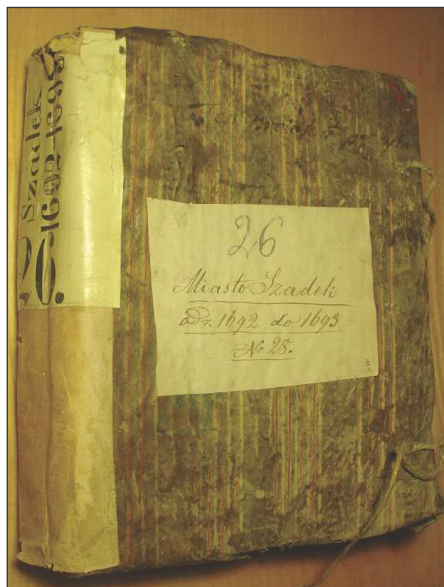 Szadek
1692-1693
26.
26
Miasto Szadek
odr. 1692 do 1693
No 28.